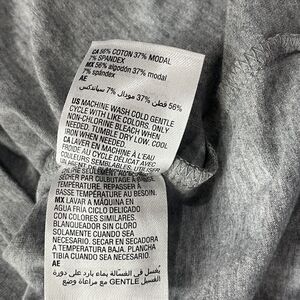 CA 56% COTON 37% MODAL
7% SPANDEX
MX 56% algodón 37% modal
7% spándex
AE
56% قطن 37% مودال 7% سباندكس
US MACHINE WASH COLD GENTLE
CYCLE WITH LIKE COLORS. ONLY
NON-CHLORINE BLEACH WHEN
NEEDED. TUMBLE DRY LOW. COOL
IRON WHEN NEEDED
CA LAVER EN MACHINE À L'EAU
FROIDE AU CYCLE DÉLICAT AVEC
COULEURS SEMBLABLES. UTILISER
SÉCHER PAR CULBUTAGE À
TEMPÉRATURE. REPASSER À
BASSE TEMPÉRATURE AU BESOIN.
MX LAVAR A MÁQUINA EN
AGUA FRÍA CICLO DELICADO
CON COLORES SIMILARES.
BLANQUEADOR SIN CLORO
SOLAMENTE CUANDO SEA
NECESARIO. SECAR EN SECADORA
A TEMPERATURA BAJA. PLANCHA
TIBIA CUANDO SEA NECESARIO.
AE
يُغسل في الغسالة بماء بارد على دورة
GENTLE